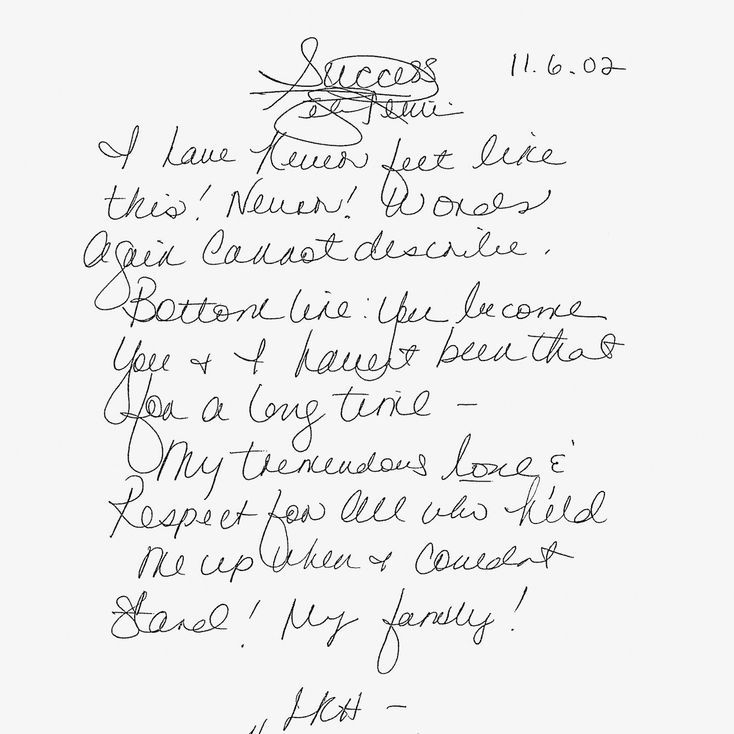 Success 11.6.02
I have Never felt like
this! Never! Words
Again Cannot describe.
Bottom line: You become
You & I haven't been that
for a long time -
My tremendous love &
Respect for All who held
me up when I Couldn't
Stand! My family!